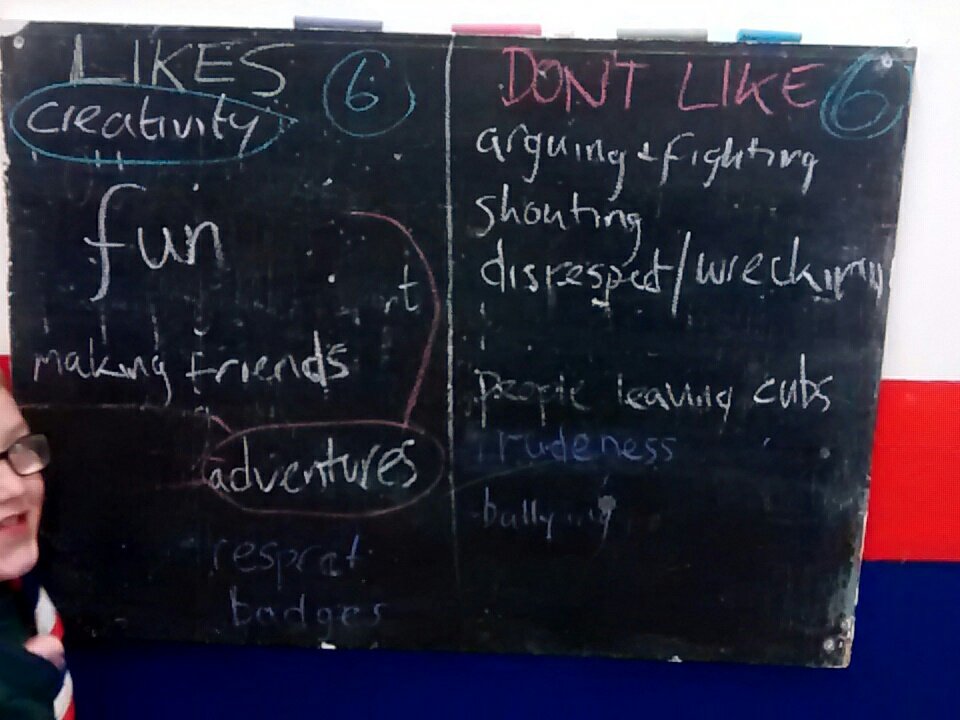 LIKES 6
creativity
fun
t
making friends
adventures
respect
badges
DON'T LIKE 6
arguing + fighting
shouting
disrespect/wrecking
people leaving cubs
rudeness
bullying